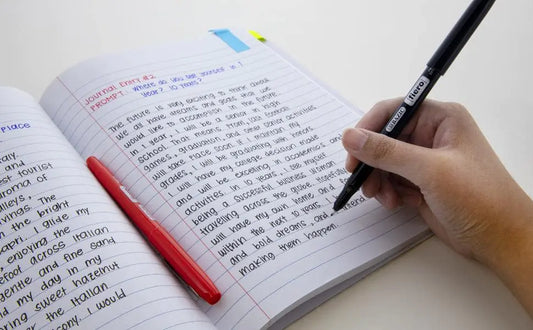 Place
ay,
est tourist
aroma of
alleys,
vings. The
the bright
apri, I glide my
, enjoying the
efoot across Italian
gentle and fine sand
d my day in my
ring sweet hazelnut
er the Italian
cony. I would
Journal Entry #2
PROMPT: Where do you see yourself in 1
year? 10 years?
The future is very exciting to think about
We all have dreams and goals that we
would like to accomplish in the future.
In 1 year, I will be a senior in high
school. That means football
games, graduation, and some senior activities
will take place soon. If I maintain my
I will be graduating with honors,
will have my college decision made
and will be excelling in academics and
activities. In 10 years, I see myself
being a successful business woman
travelling across the globe
will have my own home and
within the next 10 years,
and bold dreams, and
making them happen.
fiero